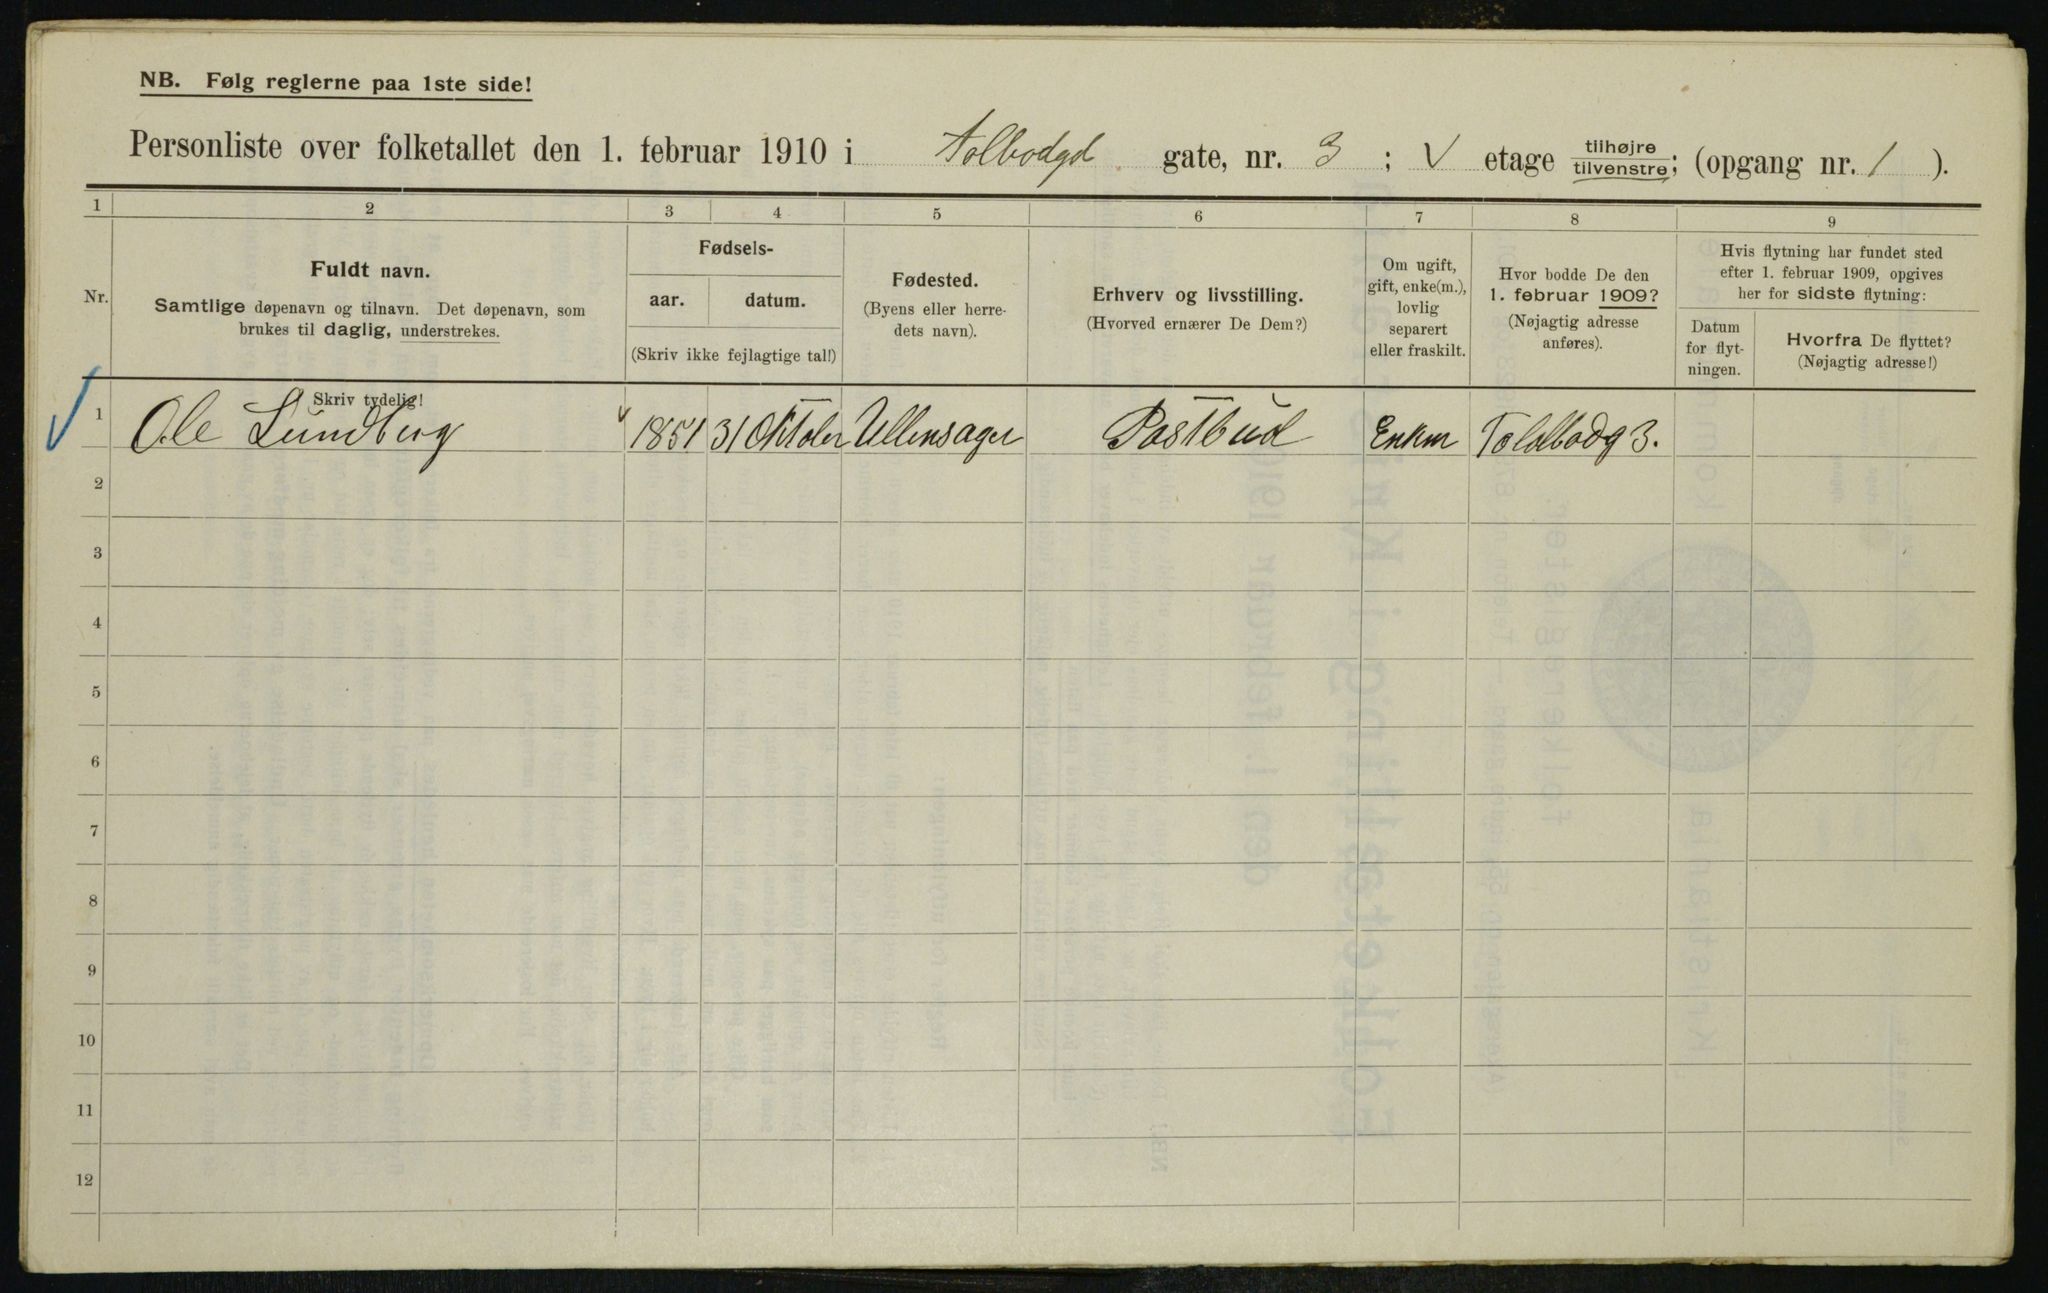 NB. Følg reglerne paa 1ste side!
Personliste over folketallet den 1. februar 1910 i Tolbodgd gate, nr. 3 ; V etage tilhøjre tilvenstre; (opgang nr. 1 ).
1 2 3 4 5 6 7 8 9
Nr.
Fuldt navn.
Samtlige døpenavn og tilnavn. Det døpenavn, som
brukes til daglig, understrekes.
Fødsels-
aar. datum.
(Skriv ikke fejlagtige tal!)
Fødested.
(Byens eller herre-
dets navn).
Erhverv og livsstilling.
(Hvorved ernærer De Dem?)
Om ugift,
gift, enke(m.),
lovlig
separert
eller fraskilt.
Hvor bodde De den
1. februar 1909?
(Nøjagtig adresse
anføres).
Hvis flytning har fundet sted
efter 1. februar 1909, opgives
her for sidste flytning:
Datum
for flyt-
ningen.
Hvorfra De flyttet?
(Nøjagtig adresse!)
Skriv tydelig!
1 Ole Lundberg 1851 31 Oktober Ullensager Postbud Enkm Toldbodg 3.
2
3
4
5
6
7
8
9
10
11
12